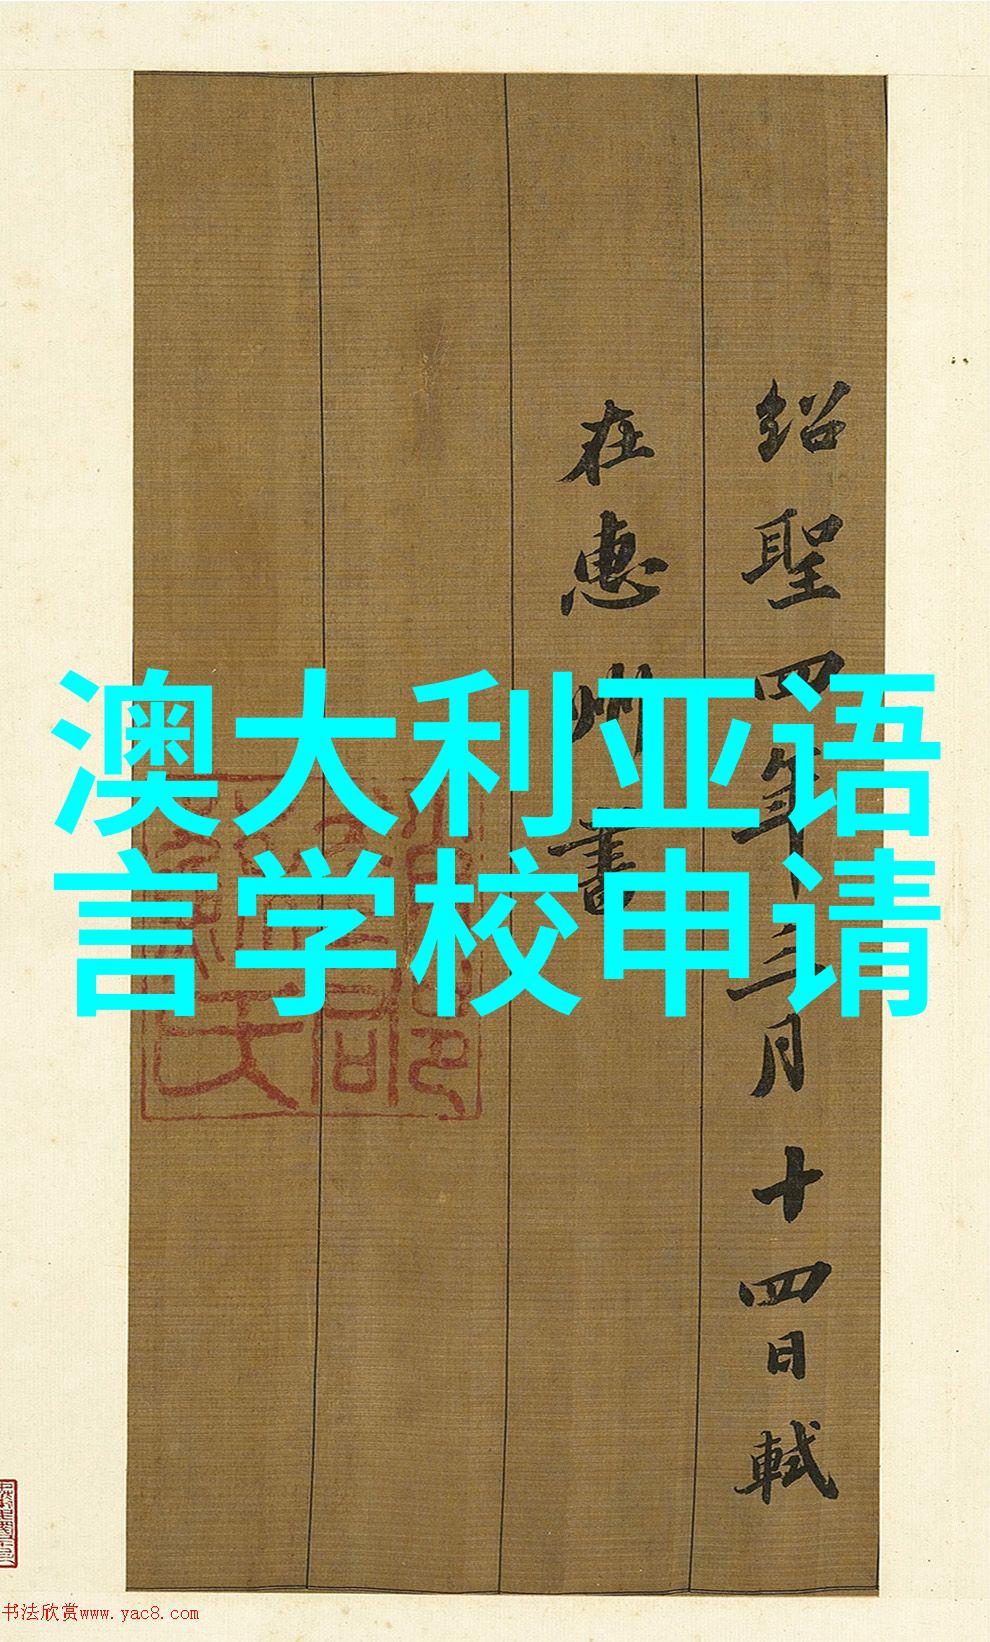 澳大利亚语
言学校申请
紹聖四年三月十四日軾
在惠州書
书法欣赏www.yac8.com